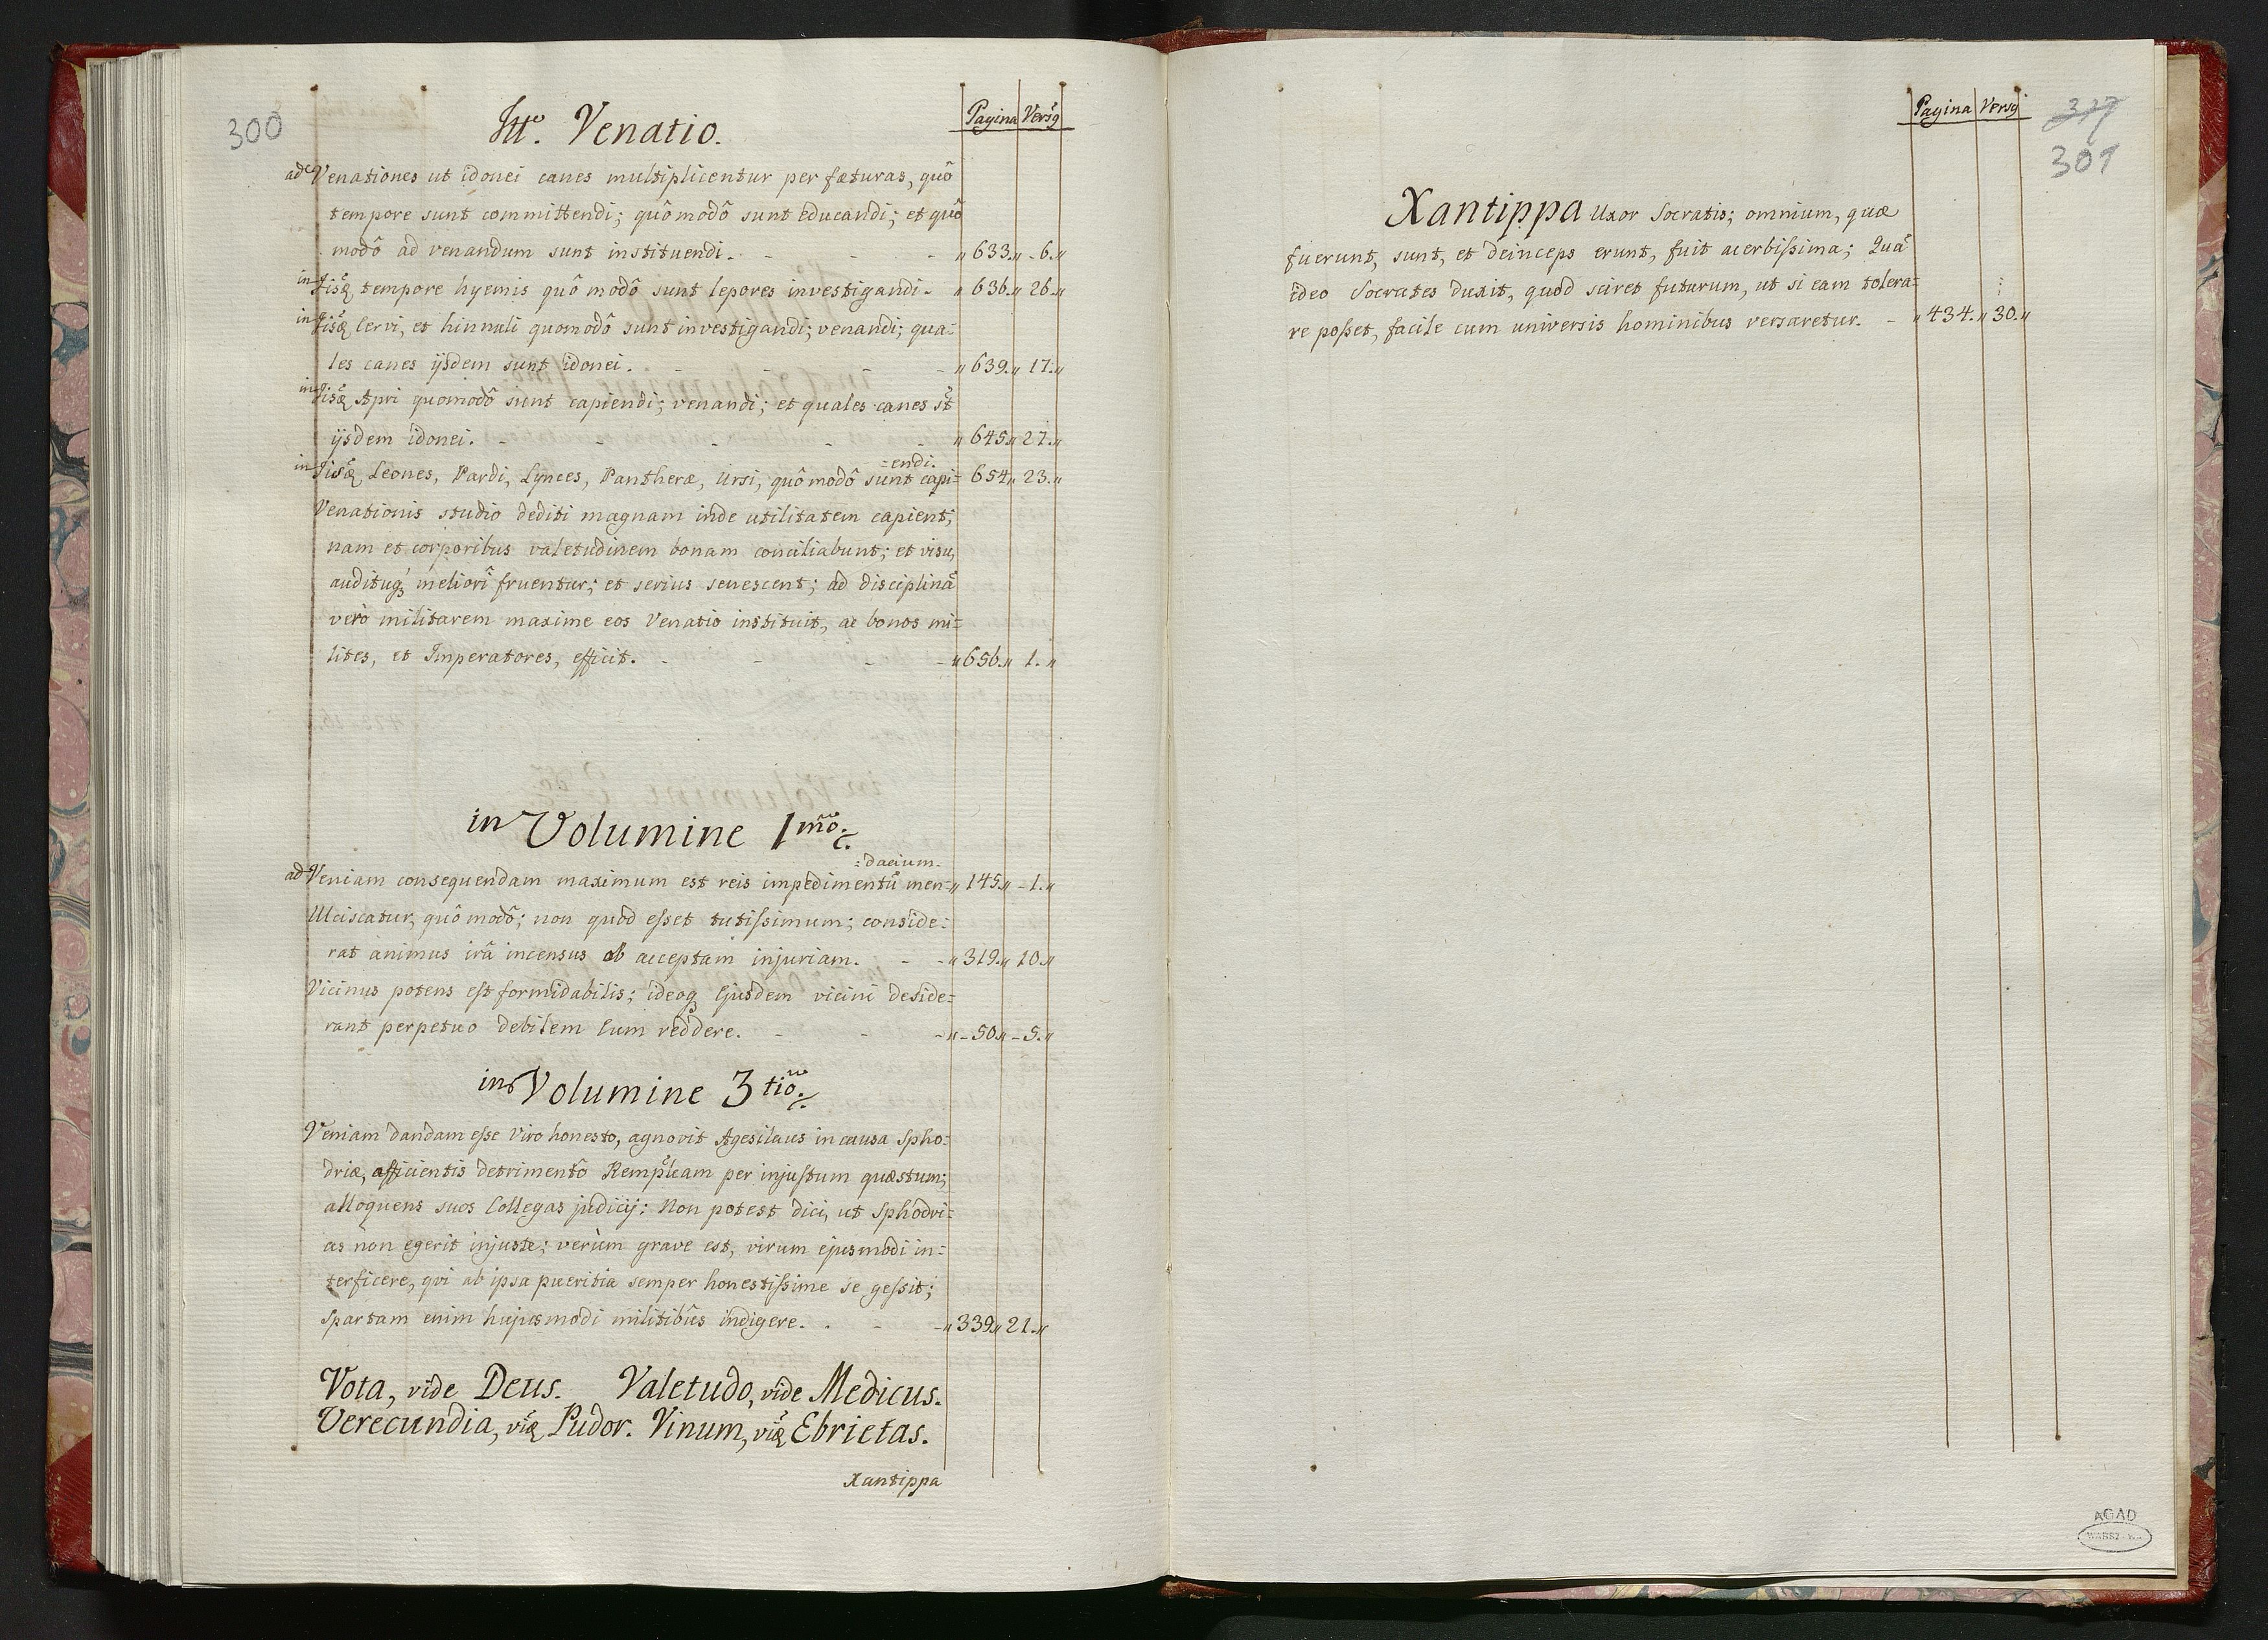 300
Ittº. Venatio.
Pagina Versꝰ
ad Venationes ut idonei canes multiplicentur per fæturas, quô
tempore sunt committendi; quômodô sunt educandi; et quô
modô ad venandum sunt instituendi. - - - „ 633. „ - 6. „
in tempore hyemis quô modô sunt lepores investigandi. - „ 636. „ 26. „
in Cervi, et hinnuli quomodô sunt investigandi; venandi; qua=
les canes ijsdem sunt idonei. - - - - „ 639. „ 17. „
in Apri quomodô sunt capiendi; venandi; et quales canes st̃
ijsdem idonei. - - - - - „ 645. „ 27. „
=endi.
in Leones, Pardi, Lynces, Pantheræ, Ursi, quômodô sunt capi= 654. „ 23. „
Venationis studio dediti magnam inde utilitatem capient;
nam et corporibus valetudinem bonam conciliabunt; et visu,
audituq́ meliori fruentur; et serius senescent; ad disciplinã
verò militarem maxime eos Venatio instituit, ac bonos mi=
lites, et Imperatores, efficit. - - - - „ 656. „ 1. „
in Volumine 1mõ.
=dacium.
ad Veniam consequendam maximum est reis impedimentũ men= „ 145. „ - 1. „
Ulciscatur, quô modô; non quod esset tutissimum; conside=
rat animus irâ incensus ob acceptam injuriam. - - „ 319. „ 10. „
Vicinus potens est formidabilis; ideoq Ejusdem vicini deside=
rant perpetuo debilem Eum reddere. - - - „ - 50. „ - 5. „
in Volumine 3tiõ.
Veniam dandam esse Viro honesto, agnovit Agesilaus in causa Spho=
driæ, afficientis detrimentô Remp̃licam per injustum quæstum;
alloquens suos Collegas judicij: Non potest dici, ut Sphodri=
as non egerit injuste; verùm grave est, virum ejusmodi in=
terficere, qvi ab ipsa pueritia semper honestissime se gessit;
Spartam enim hujusmodi militibus indigere. . - - „ 339. „ 21. „
Vota, vide Deus. Valetudo, vide Medicus.
Verecundia, vĩde Pudor. Vinum, vĩde Ebrietas.
Xantippa
Pagina Versꝰ
301
Xantippa Uxor Socratis; omnium, quæ
fuerunt, sunt, et deinceps erunt, fuit acerbissima; Quã
ideo Socrates duxit, quod sciret futurum, ut si eam tolera=
re posset, facile cum universis hominibus versaretur. - „ 434. „ 30. „
AGAD